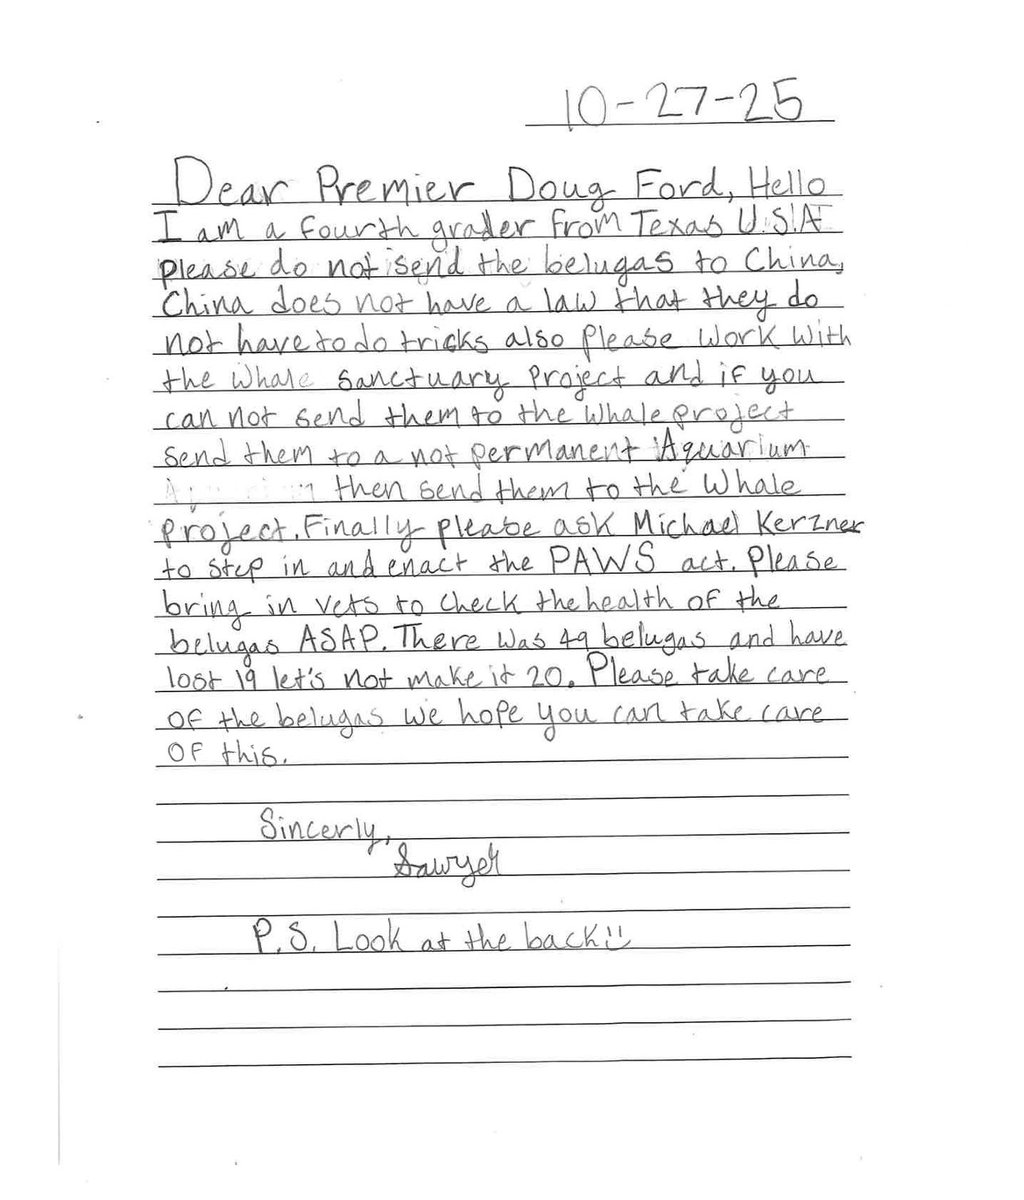 10-27-25
Dear Premier Doug Ford, Hello
I am a fourth grader from Texas U.S.A
Please do not send the belugas to China,
China does not have a law that they do
not have to do tricks also Please work with
the Whale Sanctuary Project and if you
can not send them to the Whale project
send them to a not permanent Aquarium
then send them to the Whale
project. Finally please ask Michael Kerzner
to step in and enact the PAWS act. Please
bring in vets to check the health of the
belugas ASAP. There was 49 belugas and have
lost 19 let's not make it 20. Please take care
of the belugas we hope you can take care
of this.
Sincerly,
Sawyer
P.S. Look at the back